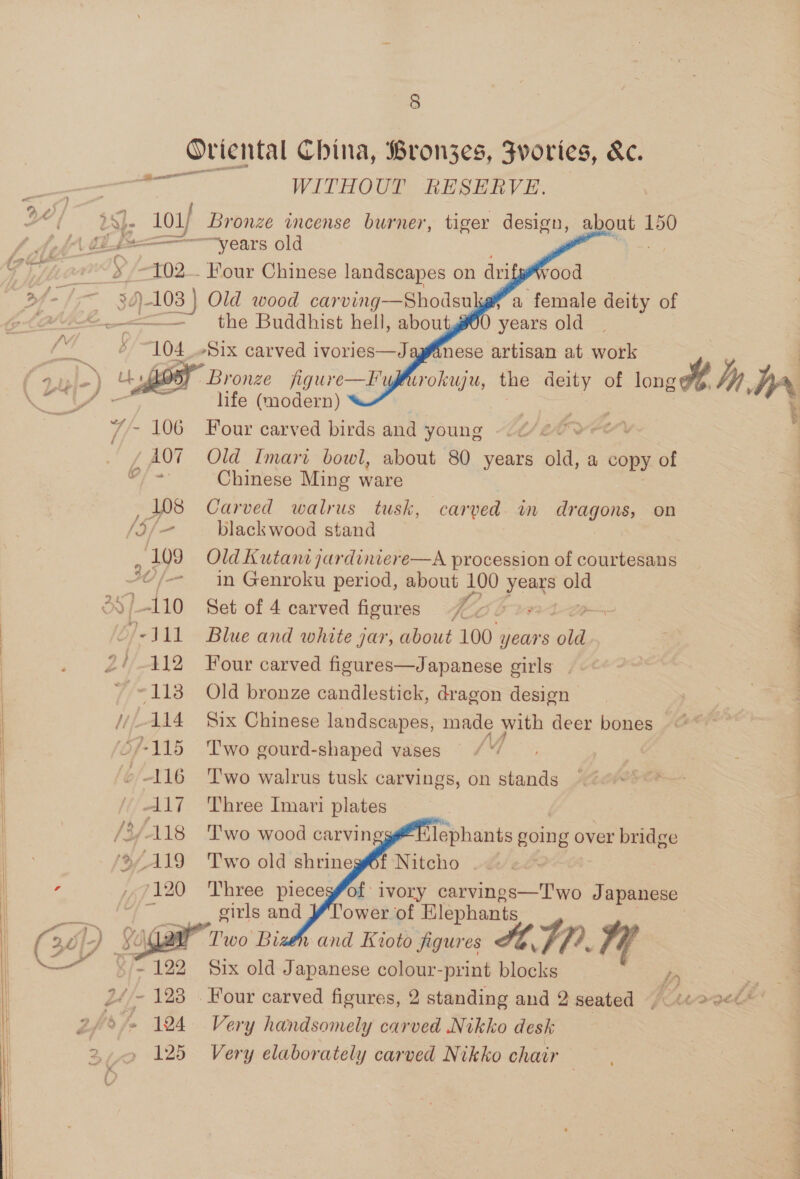 8
Oriental China, Bronzes, Ivories, &c.
WITHOUT RESERVE.
101 Bronze incense burner, tiger design, about 150
years old
102 Four Chinese landscapes on driftwood
103 Old wood carving—Shodsuka, a female deity of
the Buddhist hell, about 300 years old
104 Six carved ivories—Japanese artisan at work
105 Bronze figure—Fukurokuju, the deity of long
life (modern)
106 Four carved birds and young
107 Old Imari bowl, about 80 years old, a copy of
Chinese Ming ware
108 Carved walrus tusk, carved in dragons, on
blackwood stand
109 Old Kutani jardiniere—A procession of courtesans
in Genroku period, about 100 years old
110 Set of 4 carved figures
111 Blue and white jar, about 100 years old
112 Four carved figures—Japanese girls
113 Old bronze candlestick, dragon design
114 Six Chinese landscapes, made with deer bones
115 Two gourd-shaped vases
116 Two walrus tusk carvings, on stands
117 Three Imari plates
118 Two wood carvings—Elephants going over bridge
119 Two old shrines of Nitcho
120 Three pieces of ivory carvings—Two Japanese
girls and Tower of Elephants
121 Two Bizen and Kioto figures
122 Six old Japanese colour-print blocks
123 Four carved figures, 2 standing and 2 seated
124 Very handsomely carved Nikko desk
125 Very elaborately carved Nikko chair